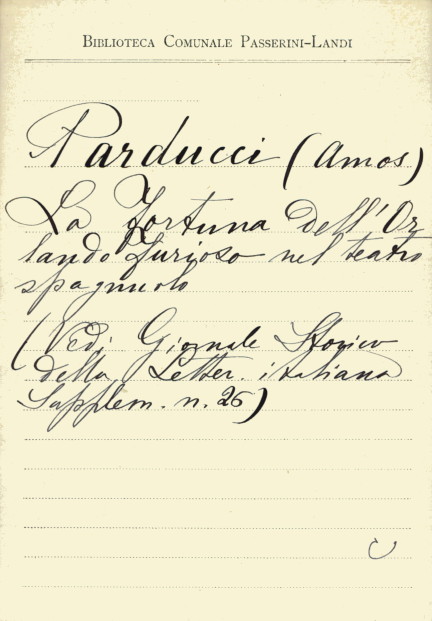 BIBLIOTECA COMUNALE PASSERINI-LANDI
Parducci (Amos)
La Fortuna dell'Or
lando Furioso nel teatro
spagnuolo
(Ved. Giornale Storico
della Letter. italiana
Supplem. n. 26)